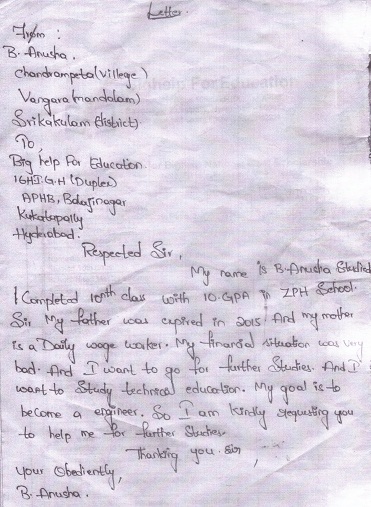 Letter
From :
B. Anusha.
Chandrampeta(villege)
Vangara(mandalam)
Srikakulam (district)
To,
Big help For Education
16HIGH (Duplex)
APHB, Balajinagar
Kukatapally
Hyderabad.
Respected Sir,
My name is B. Anusha Studied
I Completed 10th class with 10.GPA in ZPH School.
Sir My father was expired in 2015. And my mother
is a Daily wage worker. My financial situation was very
bad. And I want to go for further Studies. And I
want to Study technical education. My goal is to
become a engineer. So I am kindly requesting you
to help me for further Studies.
Thanking you sir,
your Obediently,
B. Anusha.